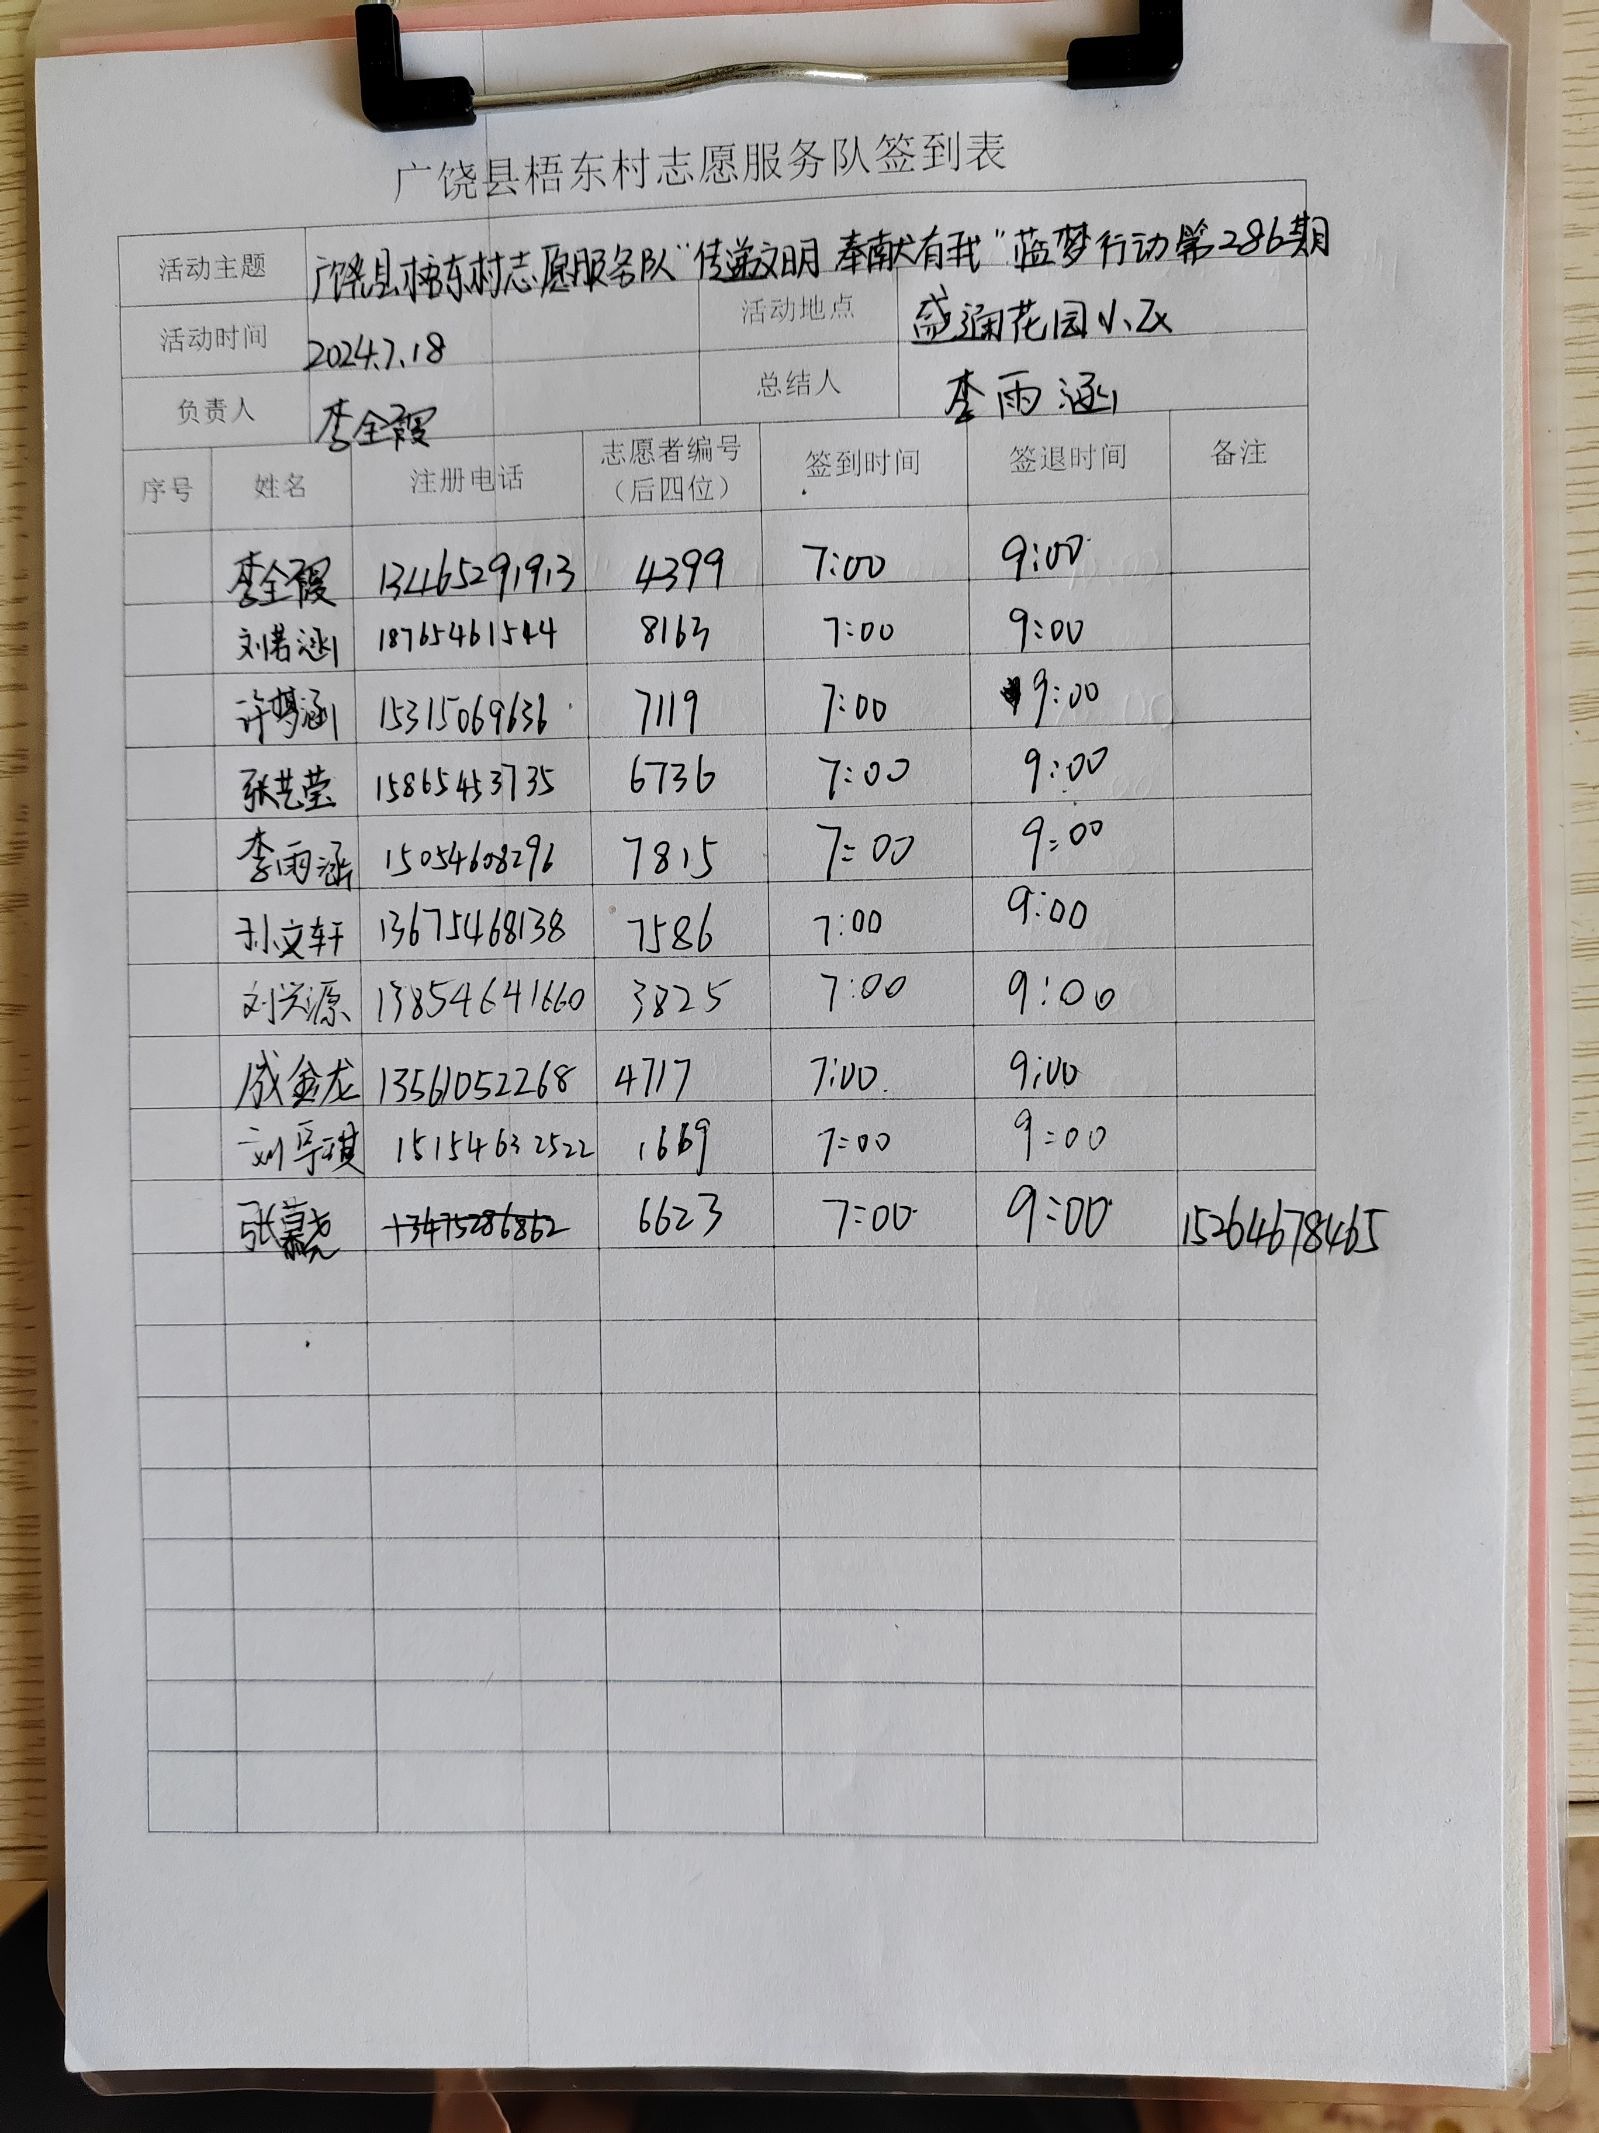 广饶县梧东村志愿服务队签到表
活动主题 广饶县梧东村志愿服务队“传递文明 奉献有我”蓝梦行动第286期
活动时间 2024.7.18 活动地点 盛通花园小区
负责人 李全霞 总结人 李雨涵
序号 姓名 注册电话 志愿者编号(后四位) 签到时间 签退时间 备注
李全霞 13465291913 4399 7:00 9:00
刘若涵 18765461544 8163 7:00 9:00
许梦涵 15315069636 7119 7:00 9:00
张艺莹 15865453735 6736 7:00 9:00
李雨涵 15054608296 7815 7:00 9:00
孙文轩 13675468138 7586 7:00 9:00
刘兴源 13854641660 3825 7:00 9:00
成金龙 13561052268 4717 7:00 9:00
刘 琪 15154632522 1669 7:00 9:00
张慕尧 13475286862 6623 7:00 9:00 15264678465